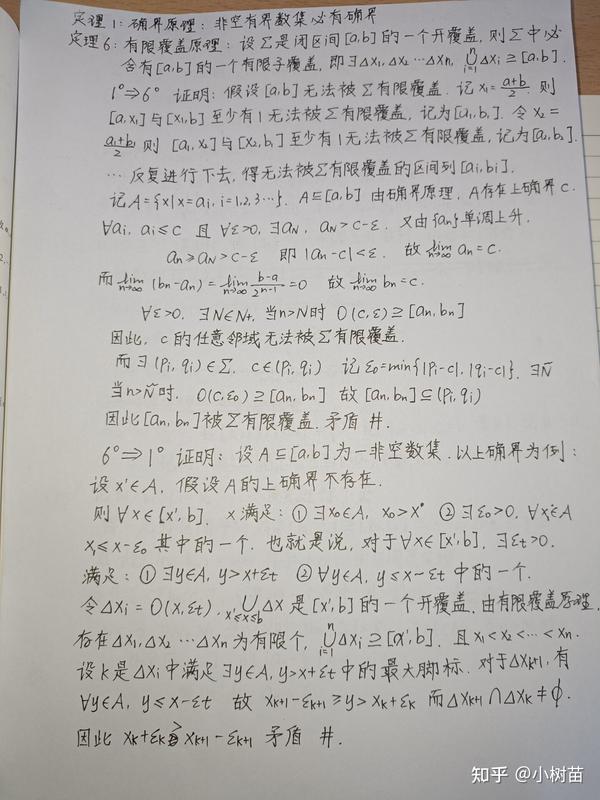 定理1:确界原理:非空有界数集必有确界
定理6:有限覆盖原理:设Σ是闭区间[a,b]的一个开覆盖,则Σ中必
含有[a,b]的一个有限子覆盖,即∃Δx₁,Δx₂…Δxₙ, ⋃ⁿᵢ₌₁Δxᵢ⊇[a,b].
1°⇒6° 证明:假设[a,b]无法被Σ有限覆盖.记x₁=(a+b)/2.则
[a,x₁]与[x₁,b]至少有1无法被Σ有限覆盖,记为[a₁,b₁].令x₂=
(a₁+b₁)/2 则[a₁,x₂]与[x₂,b₁]至少有1无法被Σ有限覆盖,记为[a₂,b₂].
…反复进行下去,得无法被Σ有限覆盖的区间列[aᵢ,bᵢ].
记A={x|x=aᵢ,i=1,2,3…}. A⊆[a,b] 由确界原理,A存在上确界c.
∀aᵢ,aᵢ≤c 且∀ε>0,∃a_N, a_N>c-ε. 又由{aₙ}单调上升,
aₙ≥a_N>c-ε 即|aₙ-c|<ε. 故lim n→∞ aₙ=c.
而lim n→∞ (bₙ-aₙ)=lim n→∞ (b-a)/2ⁿ⁻¹=0 故lim n→∞ bₙ=c.
∀ε>0, ∃N∈N₊,当n>N时 O(c,ε)⊇[aₙ,bₙ]
因此,c的任意邻域无法被Σ有限覆盖.
而∃(pᵢ,qᵢ)∈Σ, c∈(pᵢ,qᵢ) 记ε₀=min{|pᵢ-c|,|qᵢ-c|}. ∃Ñ
当n>Ñ时, O(c,ε₀)⊇[aₙ,bₙ] 故[aₙ,bₙ]⊆(pᵢ,qᵢ)
因此[aₙ,bₙ]被Σ有限覆盖.矛盾 #.
6°⇒1° 证明:设A⊆[a,b]为一非空数集.以上确界为例:
设x'∈A, 假设A的上确界不存在.
则∀x∈[x',b], x满足:①∃x₀∈A, x₀>x ②∃ε₀>0,∀x₁∈A
x₁≤x-ε₀ 其中的一个.也就是说,对于∀x∈[x',b],∃εt>0.
满足:①∃y∈A,y>x+εt ②∀y∈A, y≤x-εt 中的一个.
令Δxᵢ=O(x,εt). ⋃x'≤x≤b Δx是[x',b]的一个开覆盖.由有限覆盖原理,
存在Δx₁,Δx₂…Δxₙ为有限个, ⋃ⁿᵢ₌₁Δxᵢ⊇[x',b]. 且x₁<x₂<…<xₙ.
设k是Δxᵢ中满足∃y∈A,y>x+εt中的最大脚标.对于Δxₖ₊₁,有
∀y∈A, y≤x-εt 故xₖ₊₁-εₖ₊₁≥y>xₖ+εₖ 而Δxₖ₊₁∩Δxₖ≠∅.
因此xₖ+εₖ>xₖ₊₁-εₖ₊₁ 矛盾 #.
知乎 @小树苗